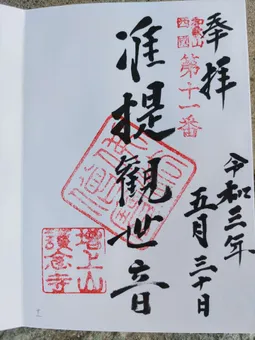 奉拝
令和三年
五月三十日
和歌山
西國
第十一番
准提觀世音
増上山
護念寺